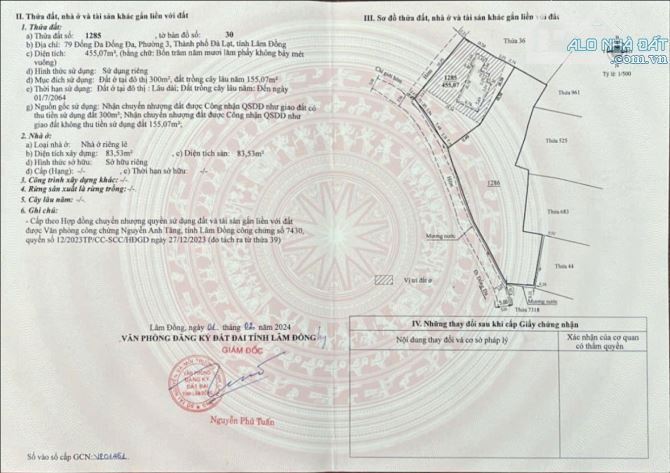 II. Thửa đất, nhà ở và tài sản khác gắn liền với đất
1. Thửa đất:
a) Thửa đất số: 1285 , tờ bản đồ số: 30
b) Địa chỉ: 79 Đống Đa Đống Đa, Phường 3, Thành phố Đà Lạt, tỉnh Lâm Đồng
c) Diện tích: 455,07m², (bằng chữ: Bốn trăm năm mươi lăm phẩy không bảy mét
vuông)
d) Hình thức sử dụng: Sử dụng riêng
đ) Mục đích sử dụng: Đất ở tại đô thị 300m², đất trồng cây lâu năm 155,07m².
e) Thời hạn sử dụng: Đất ở tại đô thị : Lâu dài; Đất trồng cây lâu năm: Đến ngày
01/7/2064
g) Nguồn gốc sử dụng: Nhận chuyển nhượng đất được Công nhận QSDĐ như giao đất có
thu tiền sử dụng đất 300m²; Nhận chuyển nhượng đất được Công nhận QSDĐ như
giao đất không thu tiền sử dụng đất 155,07m².
2. Nhà ở:
a) Loại nhà ở: Nhà ở riêng lẻ
b) Diện tích xây dựng: 83,53m² , c) Diện tích sàn: 83,53m²
d) Hình thức sở hữu: Sở hữu riêng
đ) Cấp (Hạng): -/- , e) Thời hạn sở hữu: -/-
3. Công trình xây dựng khác: -/-
4. Rừng sản xuất là rừng trồng: -/-
5. Cây lâu năm: -/-
6. Ghi chú:
- Cấp theo Hợp đồng chuyển nhượng quyền sử dụng đất và tài sản gắn liền với đất
được Văn phòng công chứng Nguyễn Anh Tăng, tỉnh Lâm Đồng công chứng số 7430,
quyển số 12/2023TP/CC-SCC/HĐGD ngày 27/12/2023 (do tách ra từ thửa 39)
Lâm Đồng, ngày 01 tháng 02 năm 2024
VĂN PHÒNG ĐĂNG KÝ ĐẤT ĐAI TỈNH LÂM ĐỒNG
GIÁM ĐỐC
VĂN PHÒNG
ĐĂNG KÝ
ĐẤT ĐAI
TỈNH LÂM ĐỒNG
Nguyễn Phú Tuấn
Số vào sổ cấp GCN:
III. Sơ đồ thửa đất, nhà ở và tài sản khác gắn liền với đất
ALO NHÀ ĐẤT
Tỷ lệ: 1/500
Thửa 36
Hẻm
1285
455,07
Thửa 961
Thửa 525
1286
Hẻm
Thửa 683
Mương nước
Thửa 44
Vị trí đất ở
Đi Đống Đa
Mương nước
Thửa 7318
IV. Những thay đổi sau khi cấp Giấy chứng nhận
Nội dung thay đổi và cơ sở pháp lý
Xác nhận của cơ quan
có thẩm quyền